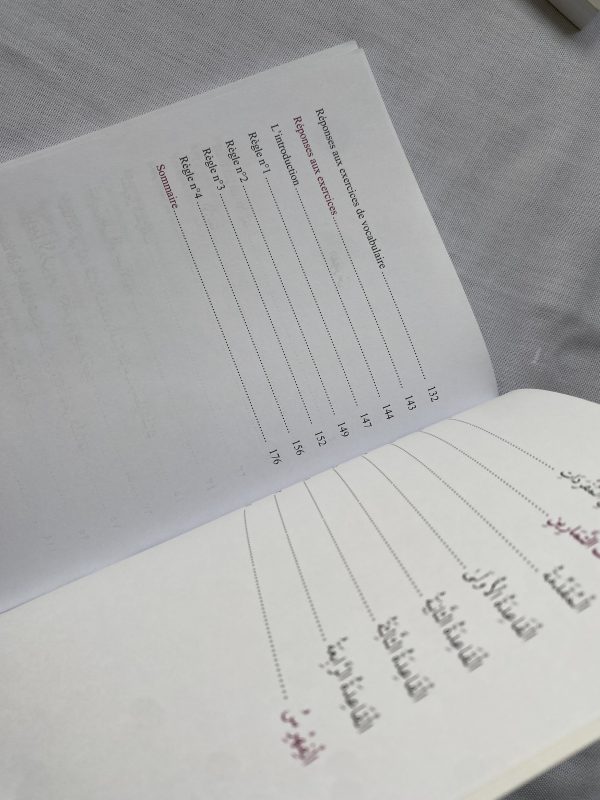 Réponses aux exercices de vocabulaire 132
Réponses aux exercices 143
L'introduction 144
Règle n°1 147
Règle n°2 149
Règle n°3 152
Règle n°4 156
Sommaire 176
المُفْرَدَاتِ
التَّمَارِينِ
المُقَدِّمَةُ
القَاعِدَةُ الأُولَى
القَاعِدَةُ الثَّانِيَةُ
القَاعِدَةُ الثَّالِثَةُ
القَاعِدَةُ الرَّابِعَةُ
الفِهْرِسُ